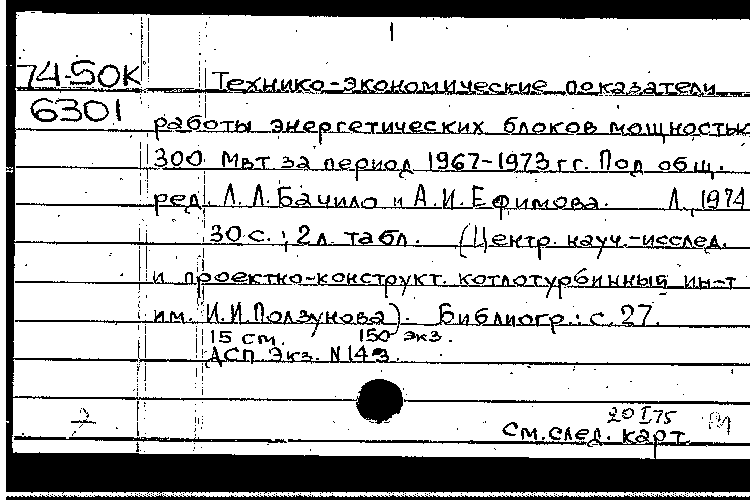 74-50К Технико-экономические показатели
6301 работы энергетических блоков мощностью
300 Мвт за период 1967-1973 гг. Под общ.
ред. Л.Л.Бачило и А.И.Ефимова. Л., 1974
30 с.; 2 л. табл. (Центр. науч.-исслед.
и проектно-конструкт. котлотурбинный ин-т
им. И.И.Ползунова). Библиогр.: с. 27.
15 см. 150 экз.
ДСП Экз. N 143.
20 I 75
См. след. карт